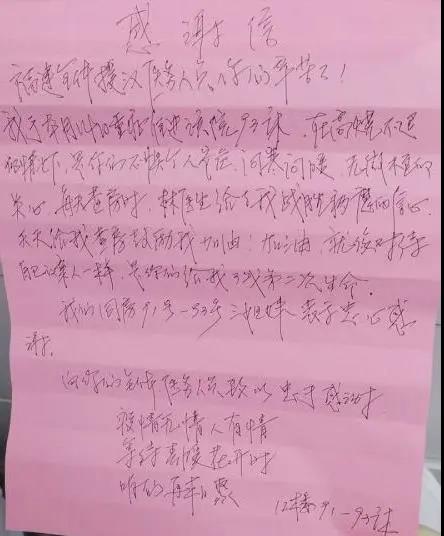 感谢信
福建全体援汉医务人员,你们辛苦了!
我于 住进该院93床,在高烧不退
的情况下,是你们不惧个人安危,问寒问暖,无微不至的
关心,每天查房时,林医生给了我战胜病魔的信心,
天天给我查房鼓励我加油!加油,就像对待
自己家人一样,是你们给我了我第二次生命.
我的同房91号-93号三姐妹表示衷心感
谢.
向你们全体医务人员致以 感谢!
疫情无情人有情
等待春暖花开时
咱们再来聚
12楼91-93床